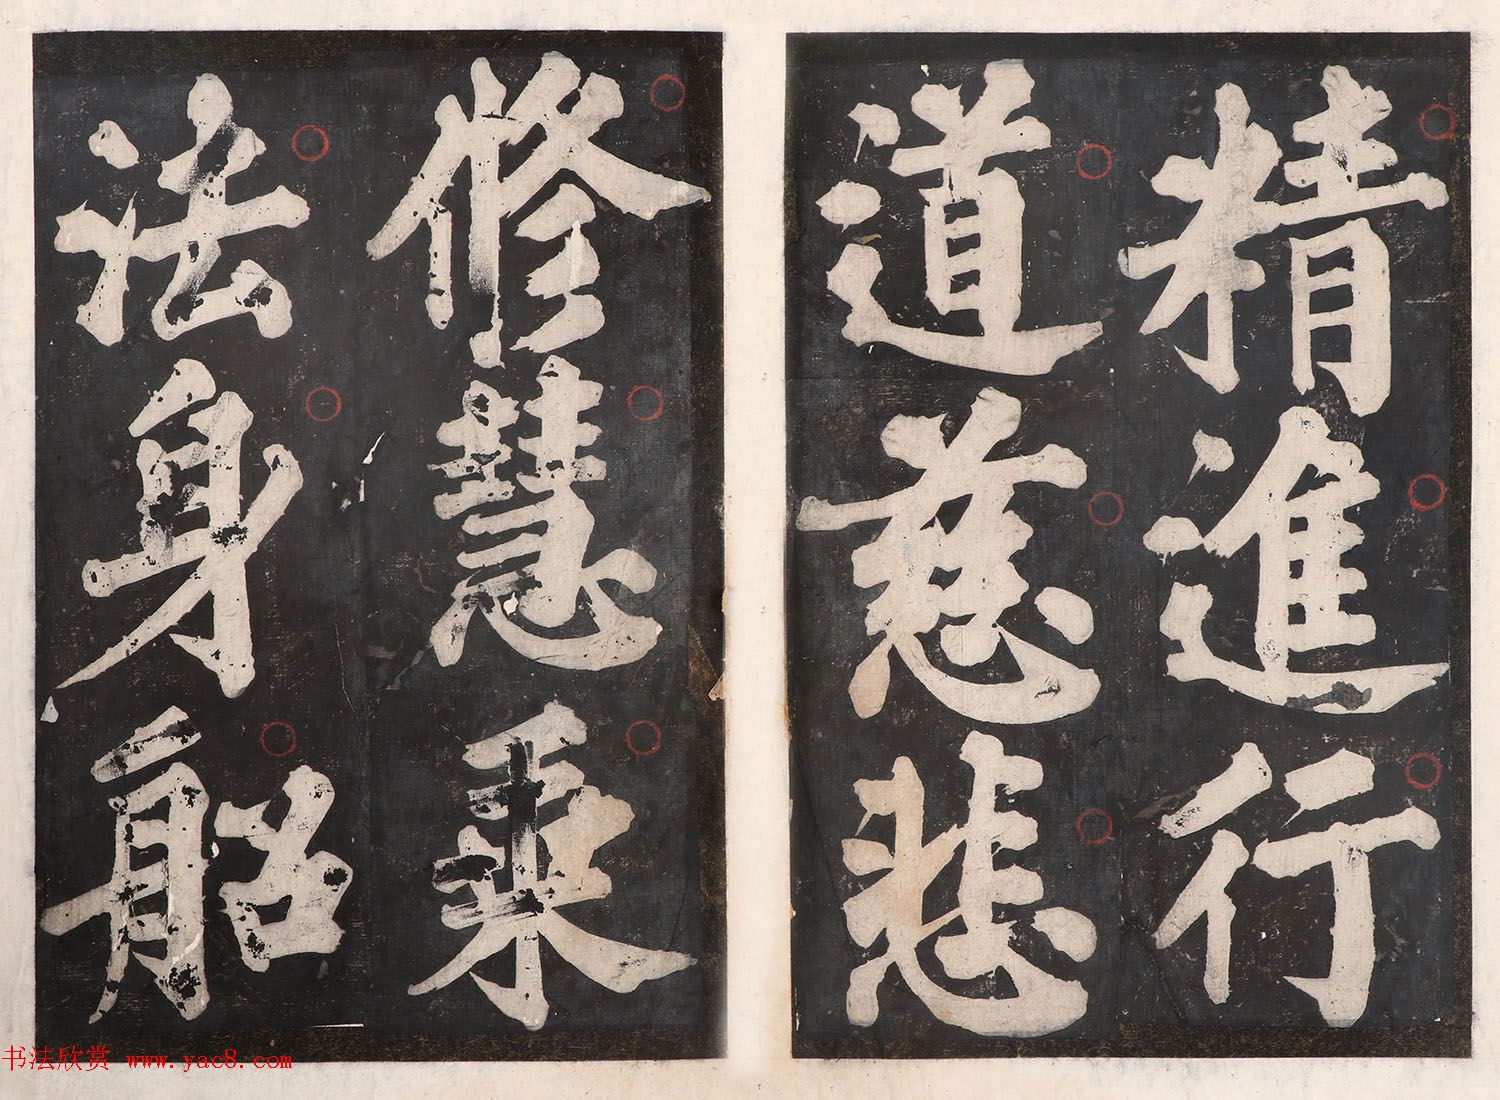 精進行
道慈悲
修慧乘
法身船
书法欣赏 www.yac8.com